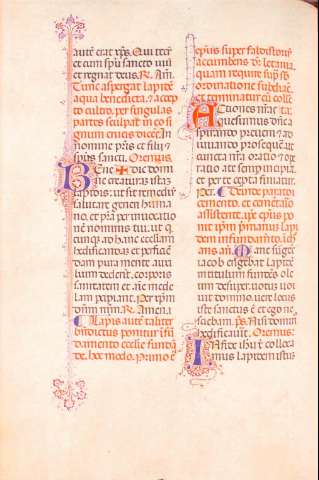 autē erat xp̄s. Qui tecū
et cum spū sancto uiuit
et regnat deus. R. Am.
Tunc aspergat lapidē
aqua benedicta, et accep
to cultro, per singulas
partes sculpat in eo si
gnum crucis dicēs. In
nomine pr̄is et filij et
spūs sancti. Oremus.
Bene ✠ dic dom
ne creaturam istā
lapidis: ut sit remediū
salutare generi huma
no, et pr̄a per inuocatio
nē nominis tui, ut q
cumq; ad hanc ecclesiam
edificandam
dam pura mente auxi
lium dederīt, corporis
sanitatem et aīe mede
lam percipiant. Per xp̄m
dom̄ nr̄m. R. Amen.
Lapis autē taliter
bn̄dictus ponitur ī fun
damento ecclesie
de, hoc modo. Primo
epus super faldistoriū
accumbens dicit letaniā,
quam require
ordinatione subdiac.
et terminatur cū collecta.
Actiones nr̄as
quesumus dn̄e a
spirando preueni et ad
iuuando prosequere: ut
cuncta nr̄a oratio et ope
ratio a te semper incipiat
et per te cepta finiatur.
Per. Deinde parato
cemento, et cementario
assistente, ipse ep̄us po
nit ipm̄ primum lapi
dem in fundamento, īcipi
ens an̄. Mane surgens
iacob erigebat lapidem
in titulum fundēs ole
um desuper. uotum uouit
domino. uere locus
iste sanctus ē et ego ne
sciebam. ps. Nisi domin̄
edificauerit. Oremus.
Domine ihu xp̄e